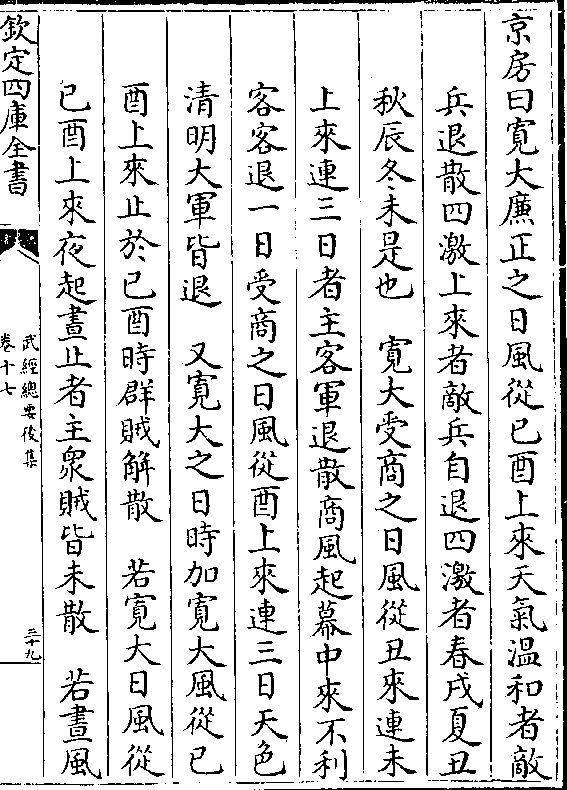 京房曰寛大㢘正之日風從巳酉上來天氣温和者敵
兵退散四激上來者敵兵自退四激者春戌夏丑
秋辰冬未是也　寛大受商之日風從丑來連未
上來連三日者主客軍退散商風起幕中來不利
客客退一日受商之日風從酉上來連三日天色
清明大軍皆退　又寛大之日時加寛大風從巳
酉上來止於巳酉時群賊解散　若寛大日風從
巳酉上來夜起晝止者主衆賊皆未散　若晝風
欽定四庫全書
武經總要後集
卷十七
三十九